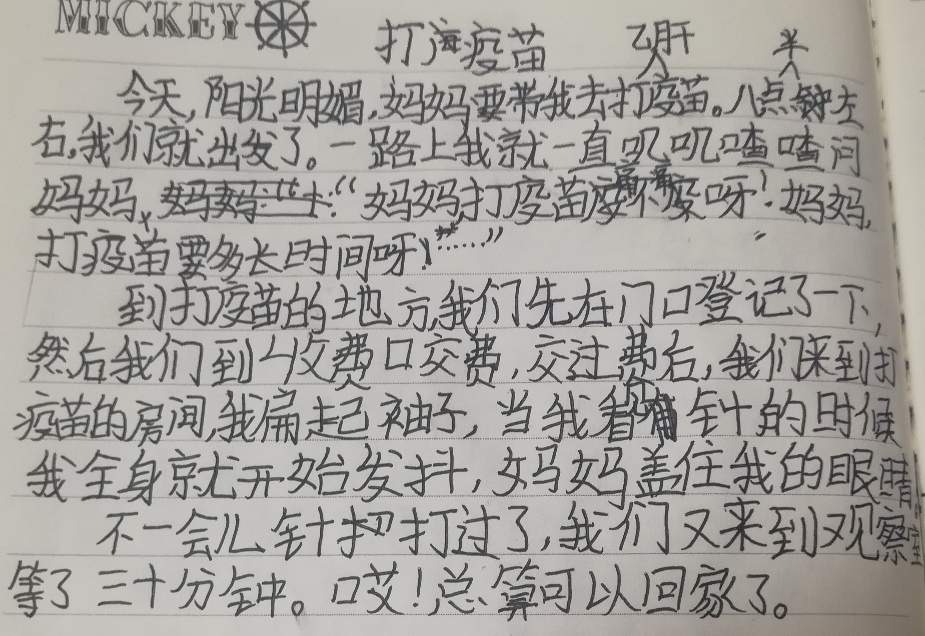 MICKEY
打疫苗 乙肝
今天,阳光明媚,妈妈要带我去打疫苗。八点钟左
右,我们就出发了。一路上我就一直叽叽喳喳问
妈妈,:“妈妈,打疫苗痛不痛呀!妈妈,
打疫苗要多长时间呀!……”
到打疫苗的地方,我们先在门口登记了一下,
然后我们到收费口交费,交过费后,我们来到打
疫苗的房间,我扁起袖子,当我看到针的时候
我全身就开始发抖,妈妈盖住我的眼睛
不一会儿针打过了,我们又来到观察室
等了三十分钟。哎!总算可以回家了。